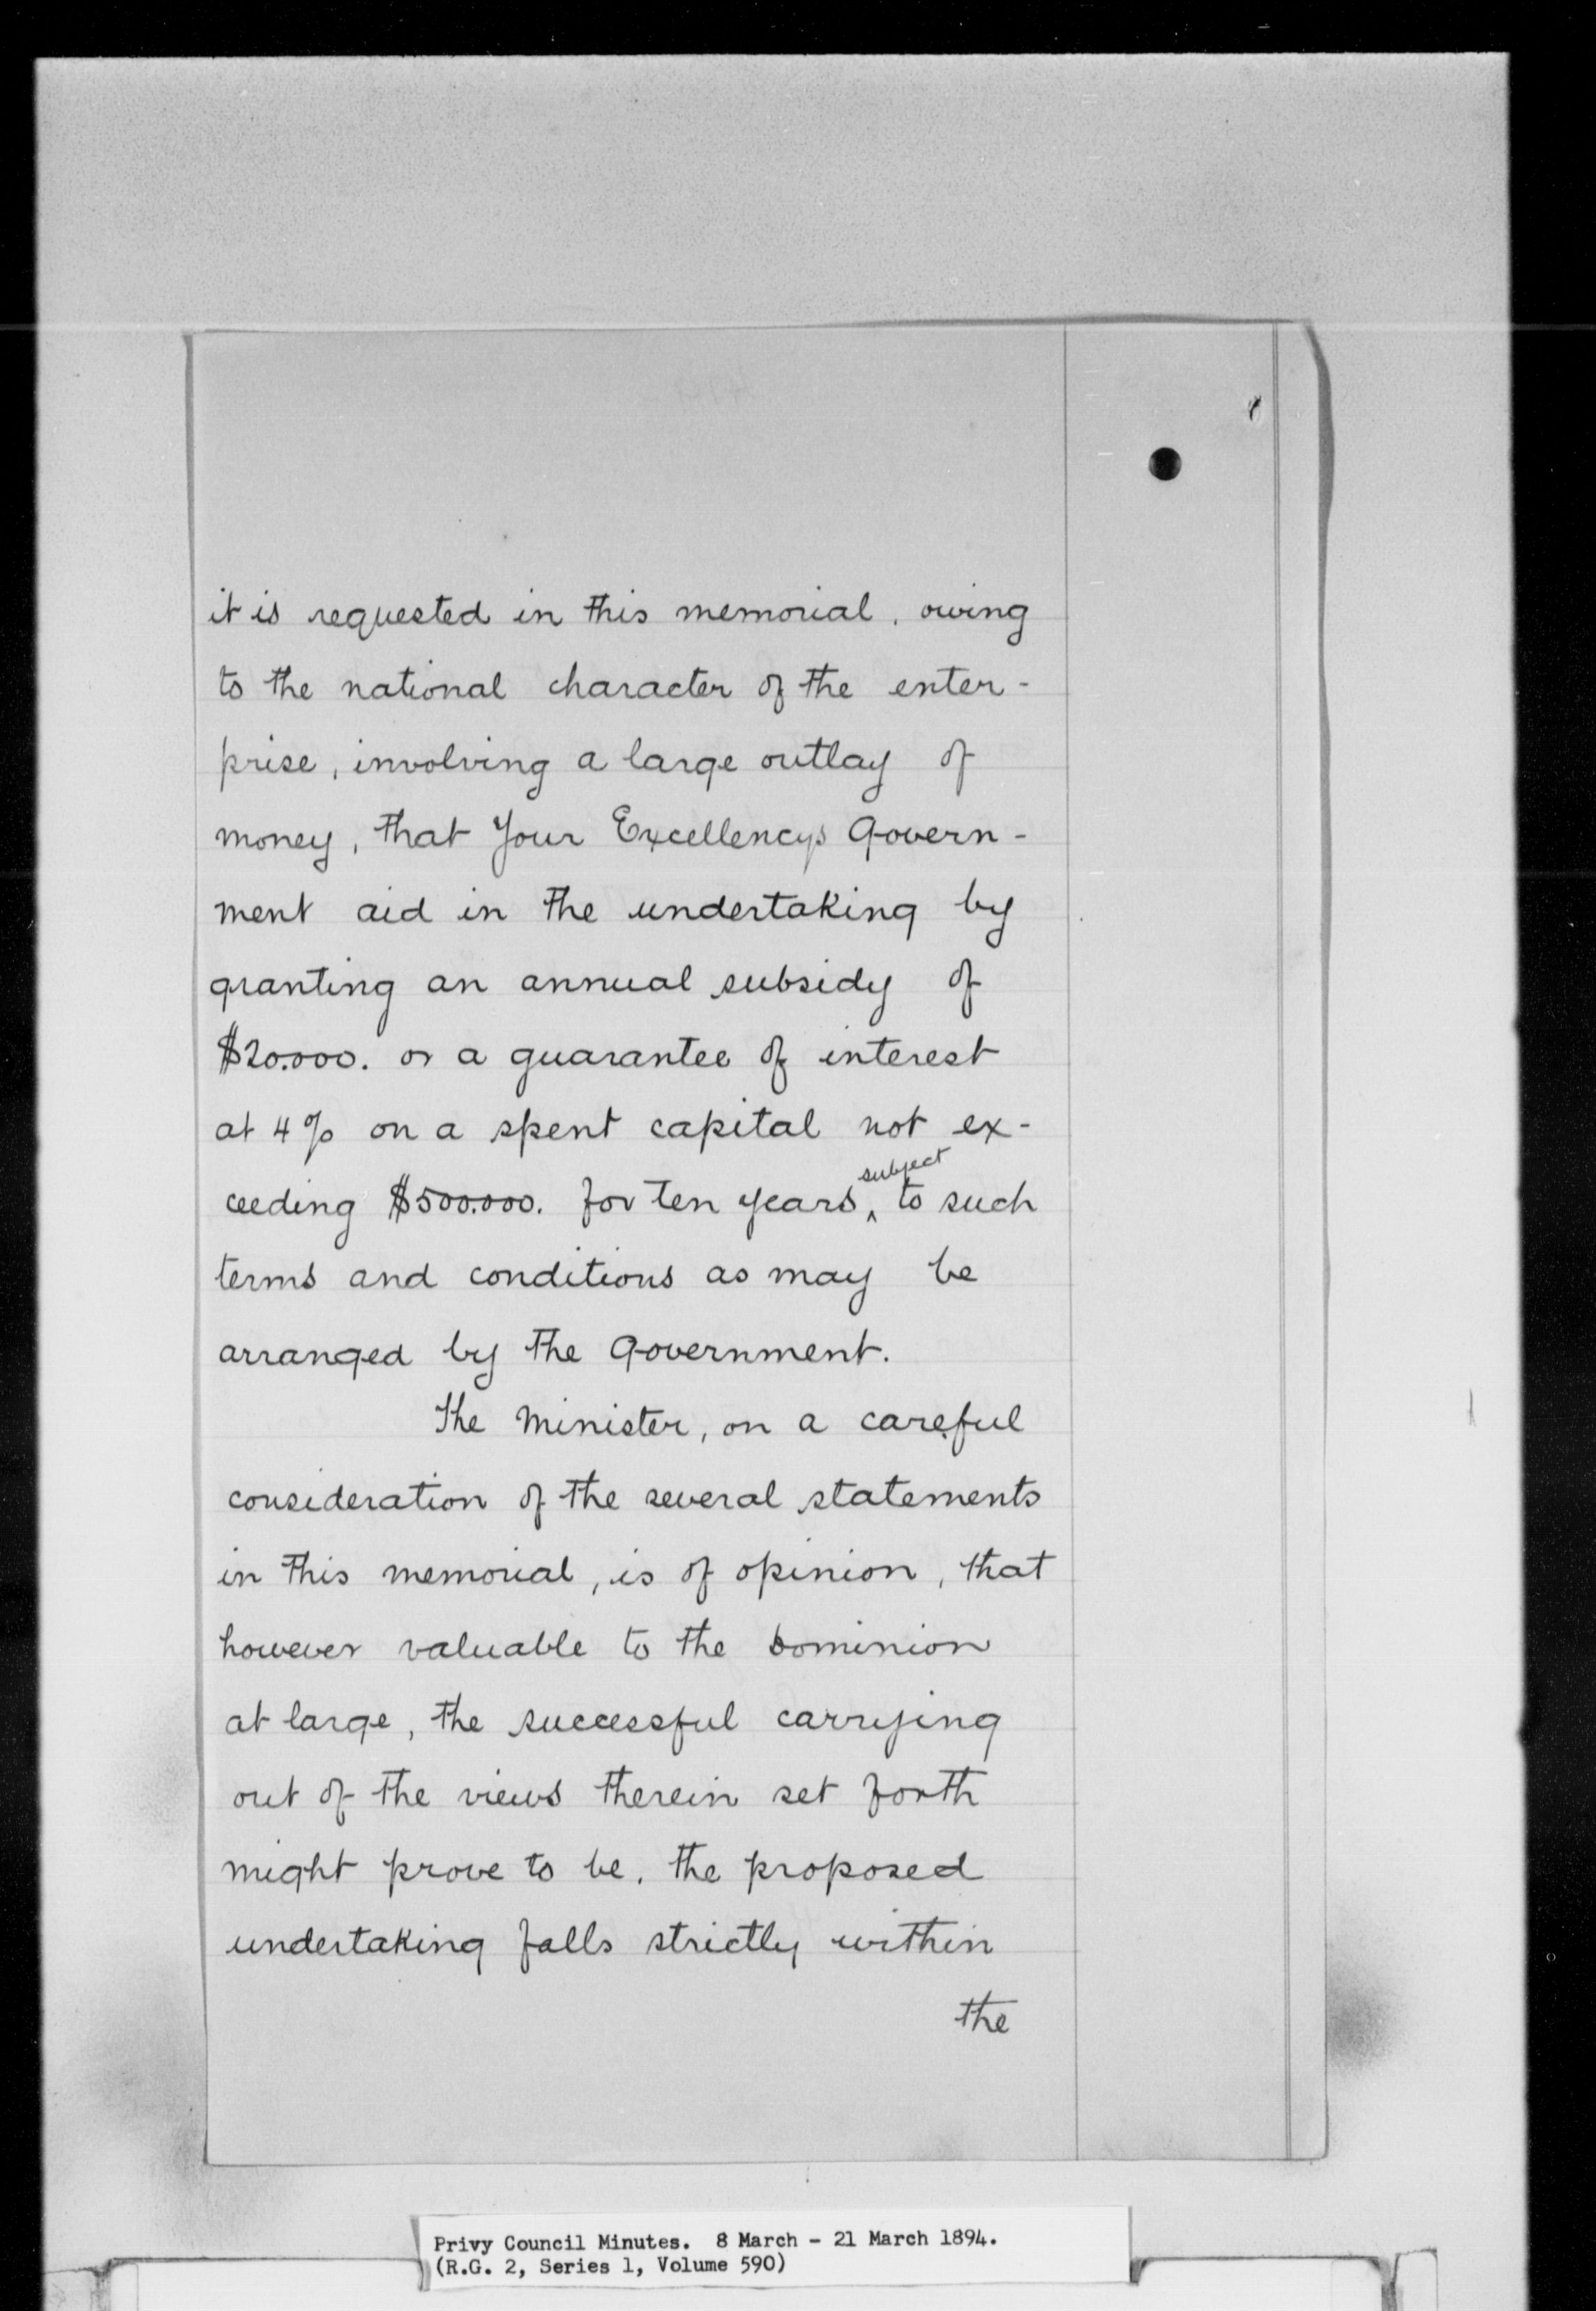 it is requested in this memorial, owing
to the national character of the enter-
prise, involving a large outlay of
money, that Your Excellencys Govern-
ment aid in the undertaking by
granting an annual subsidy of
$20.000. or a guarantee of interest
at 4% on a spent capital not ex-
ceeding $500.000. for ten years, subject to such
terms and conditions as may be
arranged by the Government.
The Minister, on a careful
consideration of the several statements
in this memorial, is of opinion, that
however valuable to the Dominion
at large, the successful carrying
out of the views therein set forth
might prove to be, the proposed
undertaking falls strictly within
the
Privy Council Minutes. 8 March - 21 March 1894.
(R.G. 2, Series 1, Volume 590)